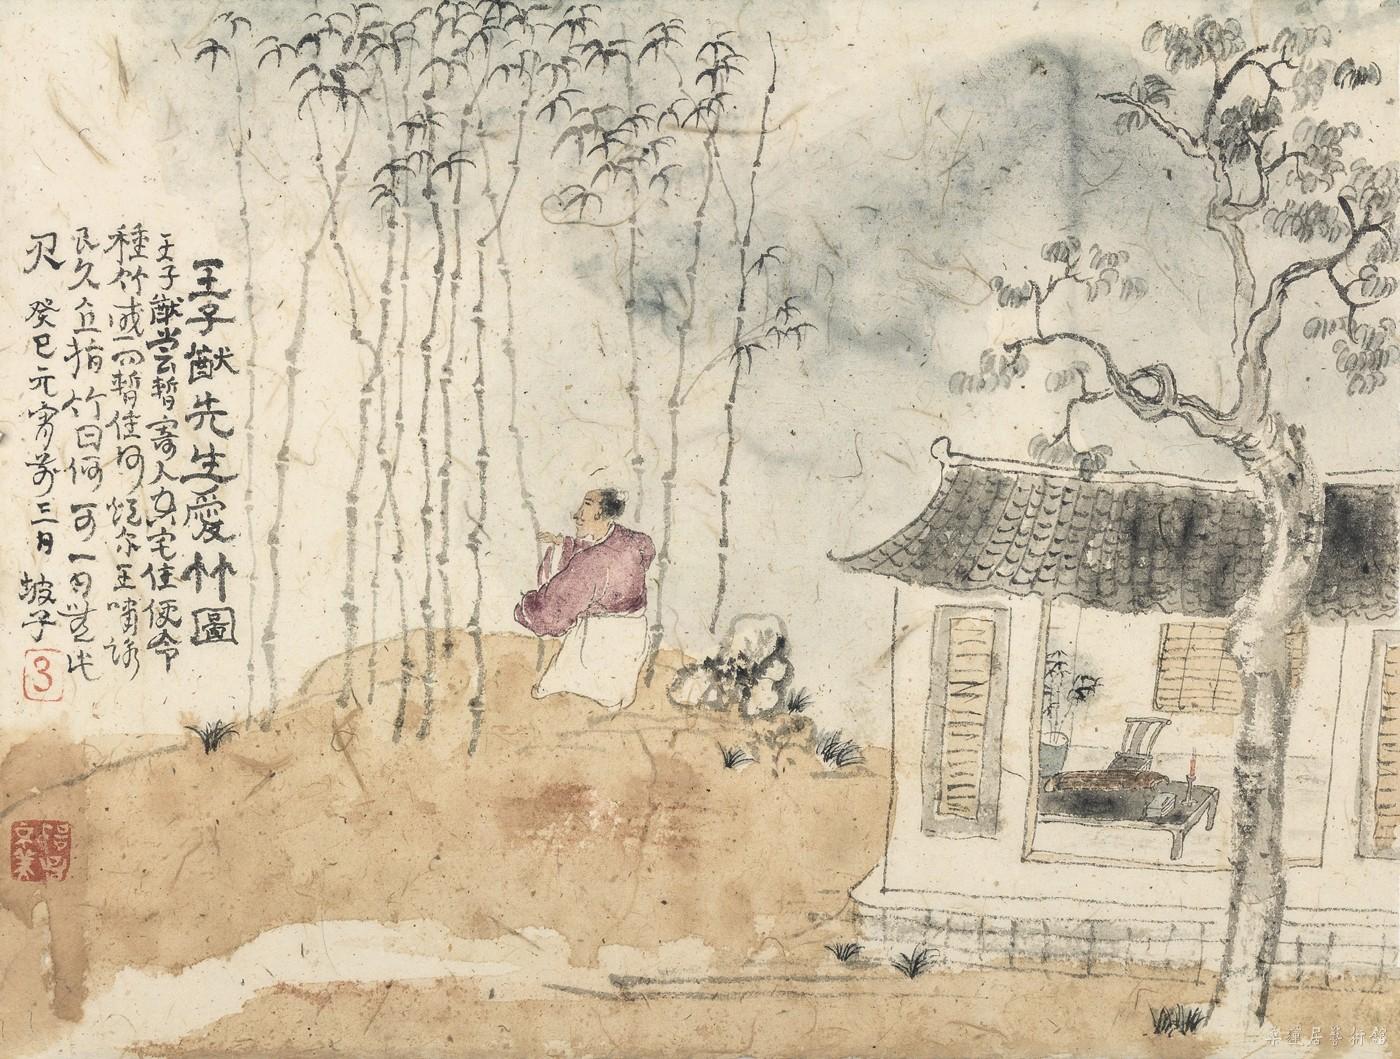 王子猷先生愛竹圖
王子猷嘗云暫寄人空宅住便令
種竹或问暫住何烦尔王嘯詠
良久直指竹曰何可一日無此
君 癸巳元宵前三日 坡子
3